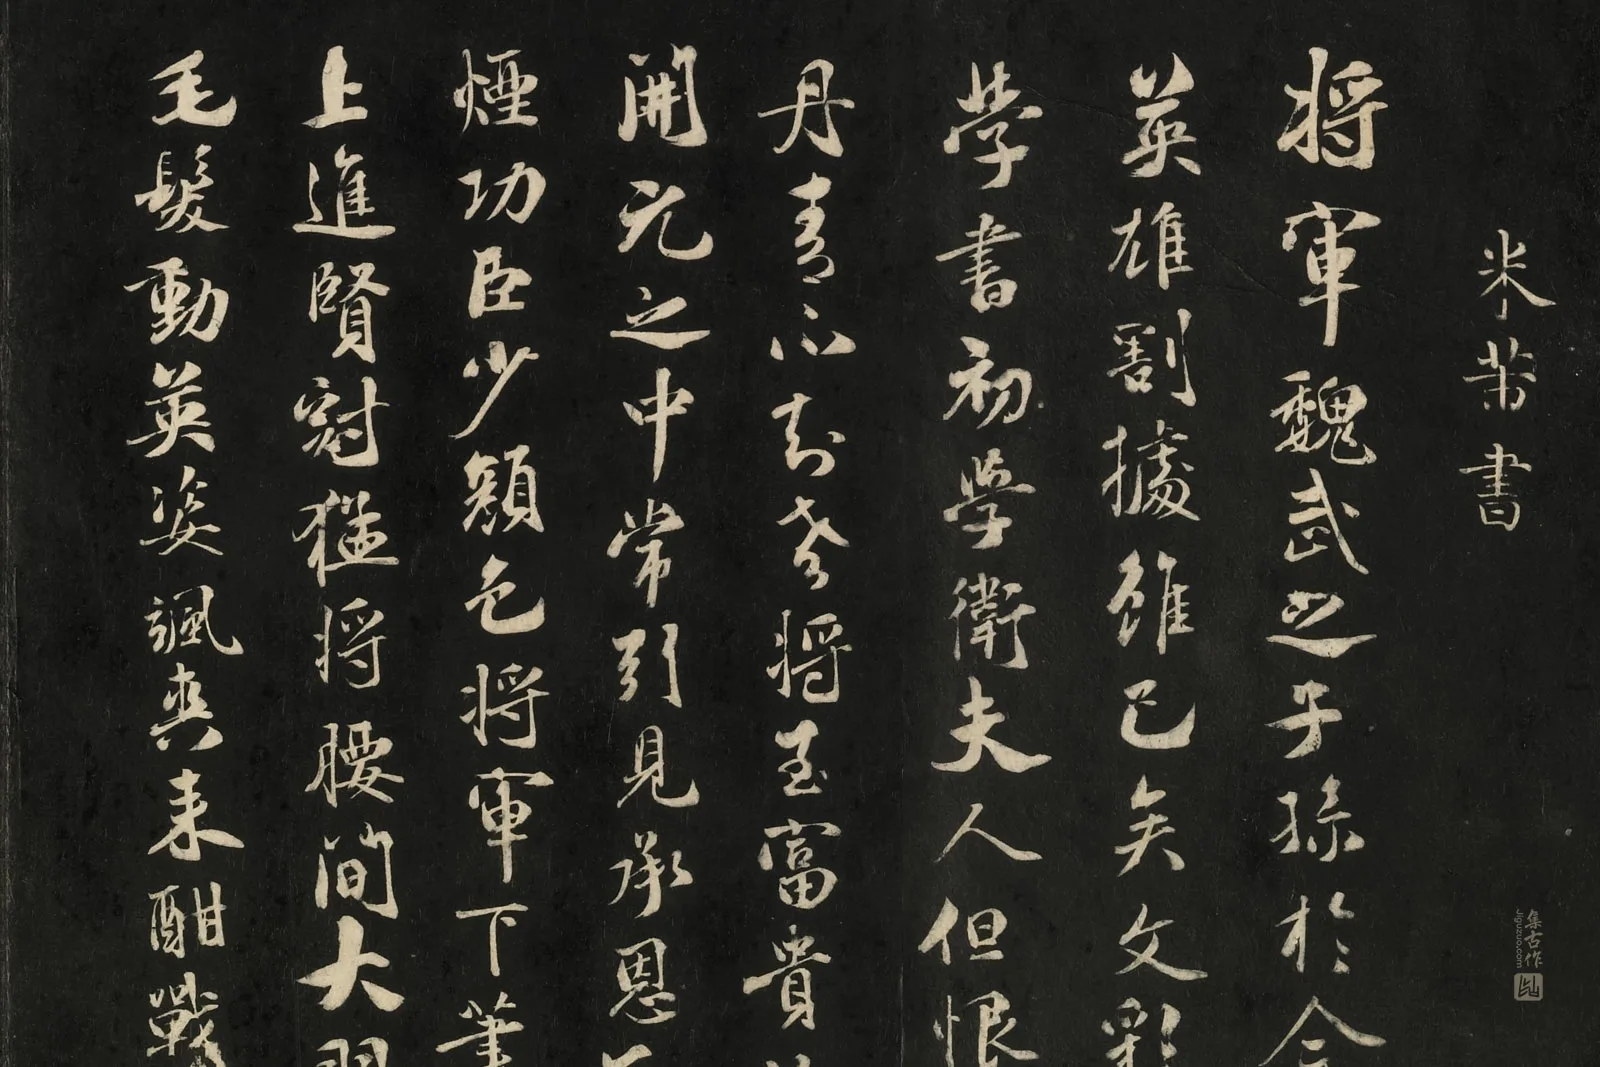 米芾書
将軍魏武之子孫於今
英雄割據雖已矣文彩
學書初學衛夫人但恨
丹青不知老将至富貴
開元之中常引見承恩
煙功臣少顏色将軍下筆
上進賢冠猛将腰間大羽
毛髮動英姿颯爽来酣戰
集古作
Jiguzuo.com